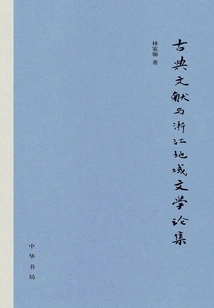 古典文献与浙江地域文学论集
林家骊 著
中华书局